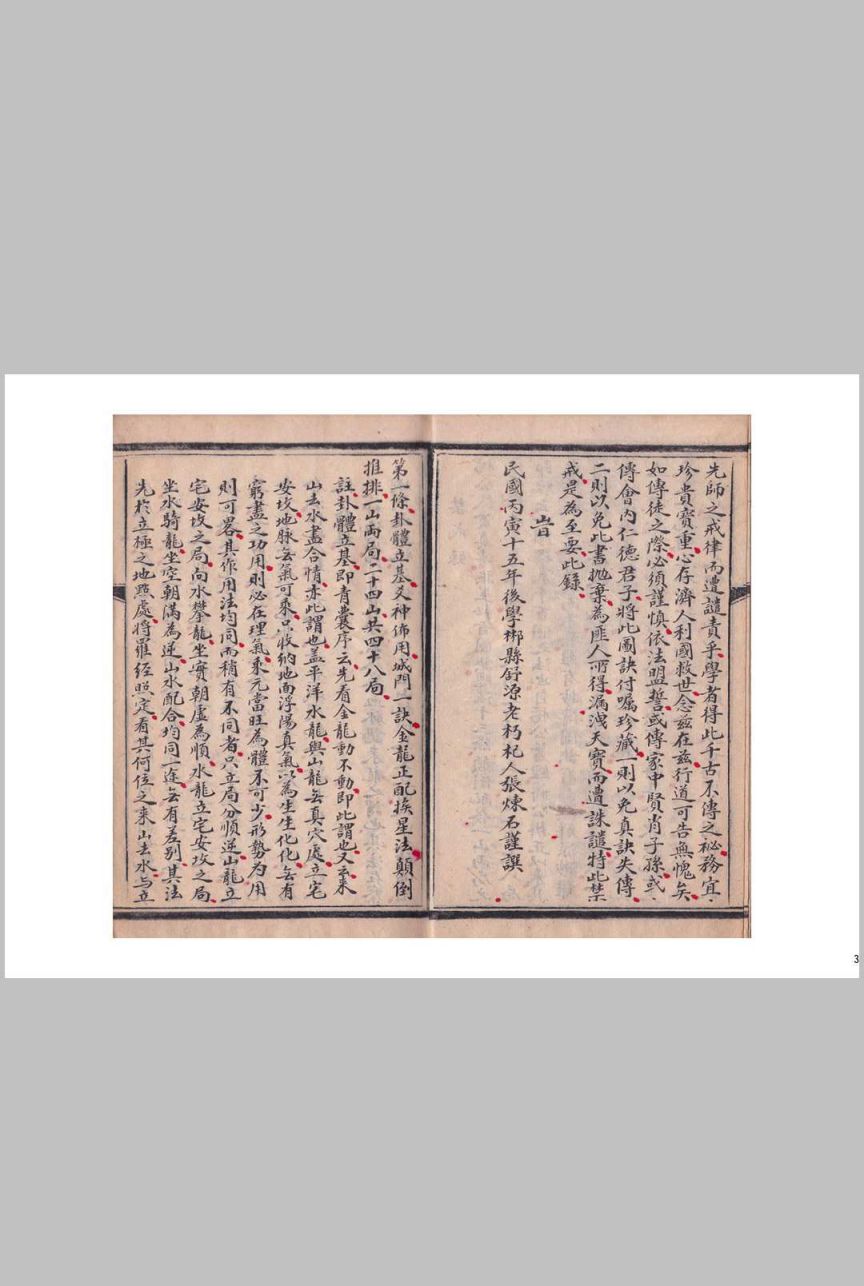 先師之戒律而遭譴責乎學者得此千古不傳之秘務宜
珍貴寶重心存濟人利國救世念茲在茲行道可告無愧矣
如傳徒之際必須謹慎依法盟誓或傳家中賢肖子孫或
傳會內仁德君子將此圖訣付囑珍藏一則以免真訣失傳
二則以免此書拋棄為匪人所得漏洩天寶而遭誅譴特此禁
戒是為至要此錄
旹
民國丙寅十五年後學郴縣舒源老朽杞人張煉石謹撰
第一條卦體立基爻神佈用城門一訣金龍正配挨星法顛倒
推排一山兩局二十四山共四十八局
註卦體立基即青囊序云先看金龍動不動即此謂也又云來
山去水盡合情亦此謂也蓋平洋水龍與山龍無真穴處立宅
安坟地脉無氣可乘只收納地面浮陽真氣以為生生化化無有
窮盡之功用則必在理氣乘元當旺為體不可少形勢為用
則可畧其作用法均同而稍有不同者只立局分順逆山龍立
宅安坟之局向水攀龍坐實朝虛為順水龍立宅安坟之局
坐水騎龍坐空朝滿為逆山水配合均同一途無有差別其法
先於立極之地點處將羅經照定看其何位之來山去水与立
3